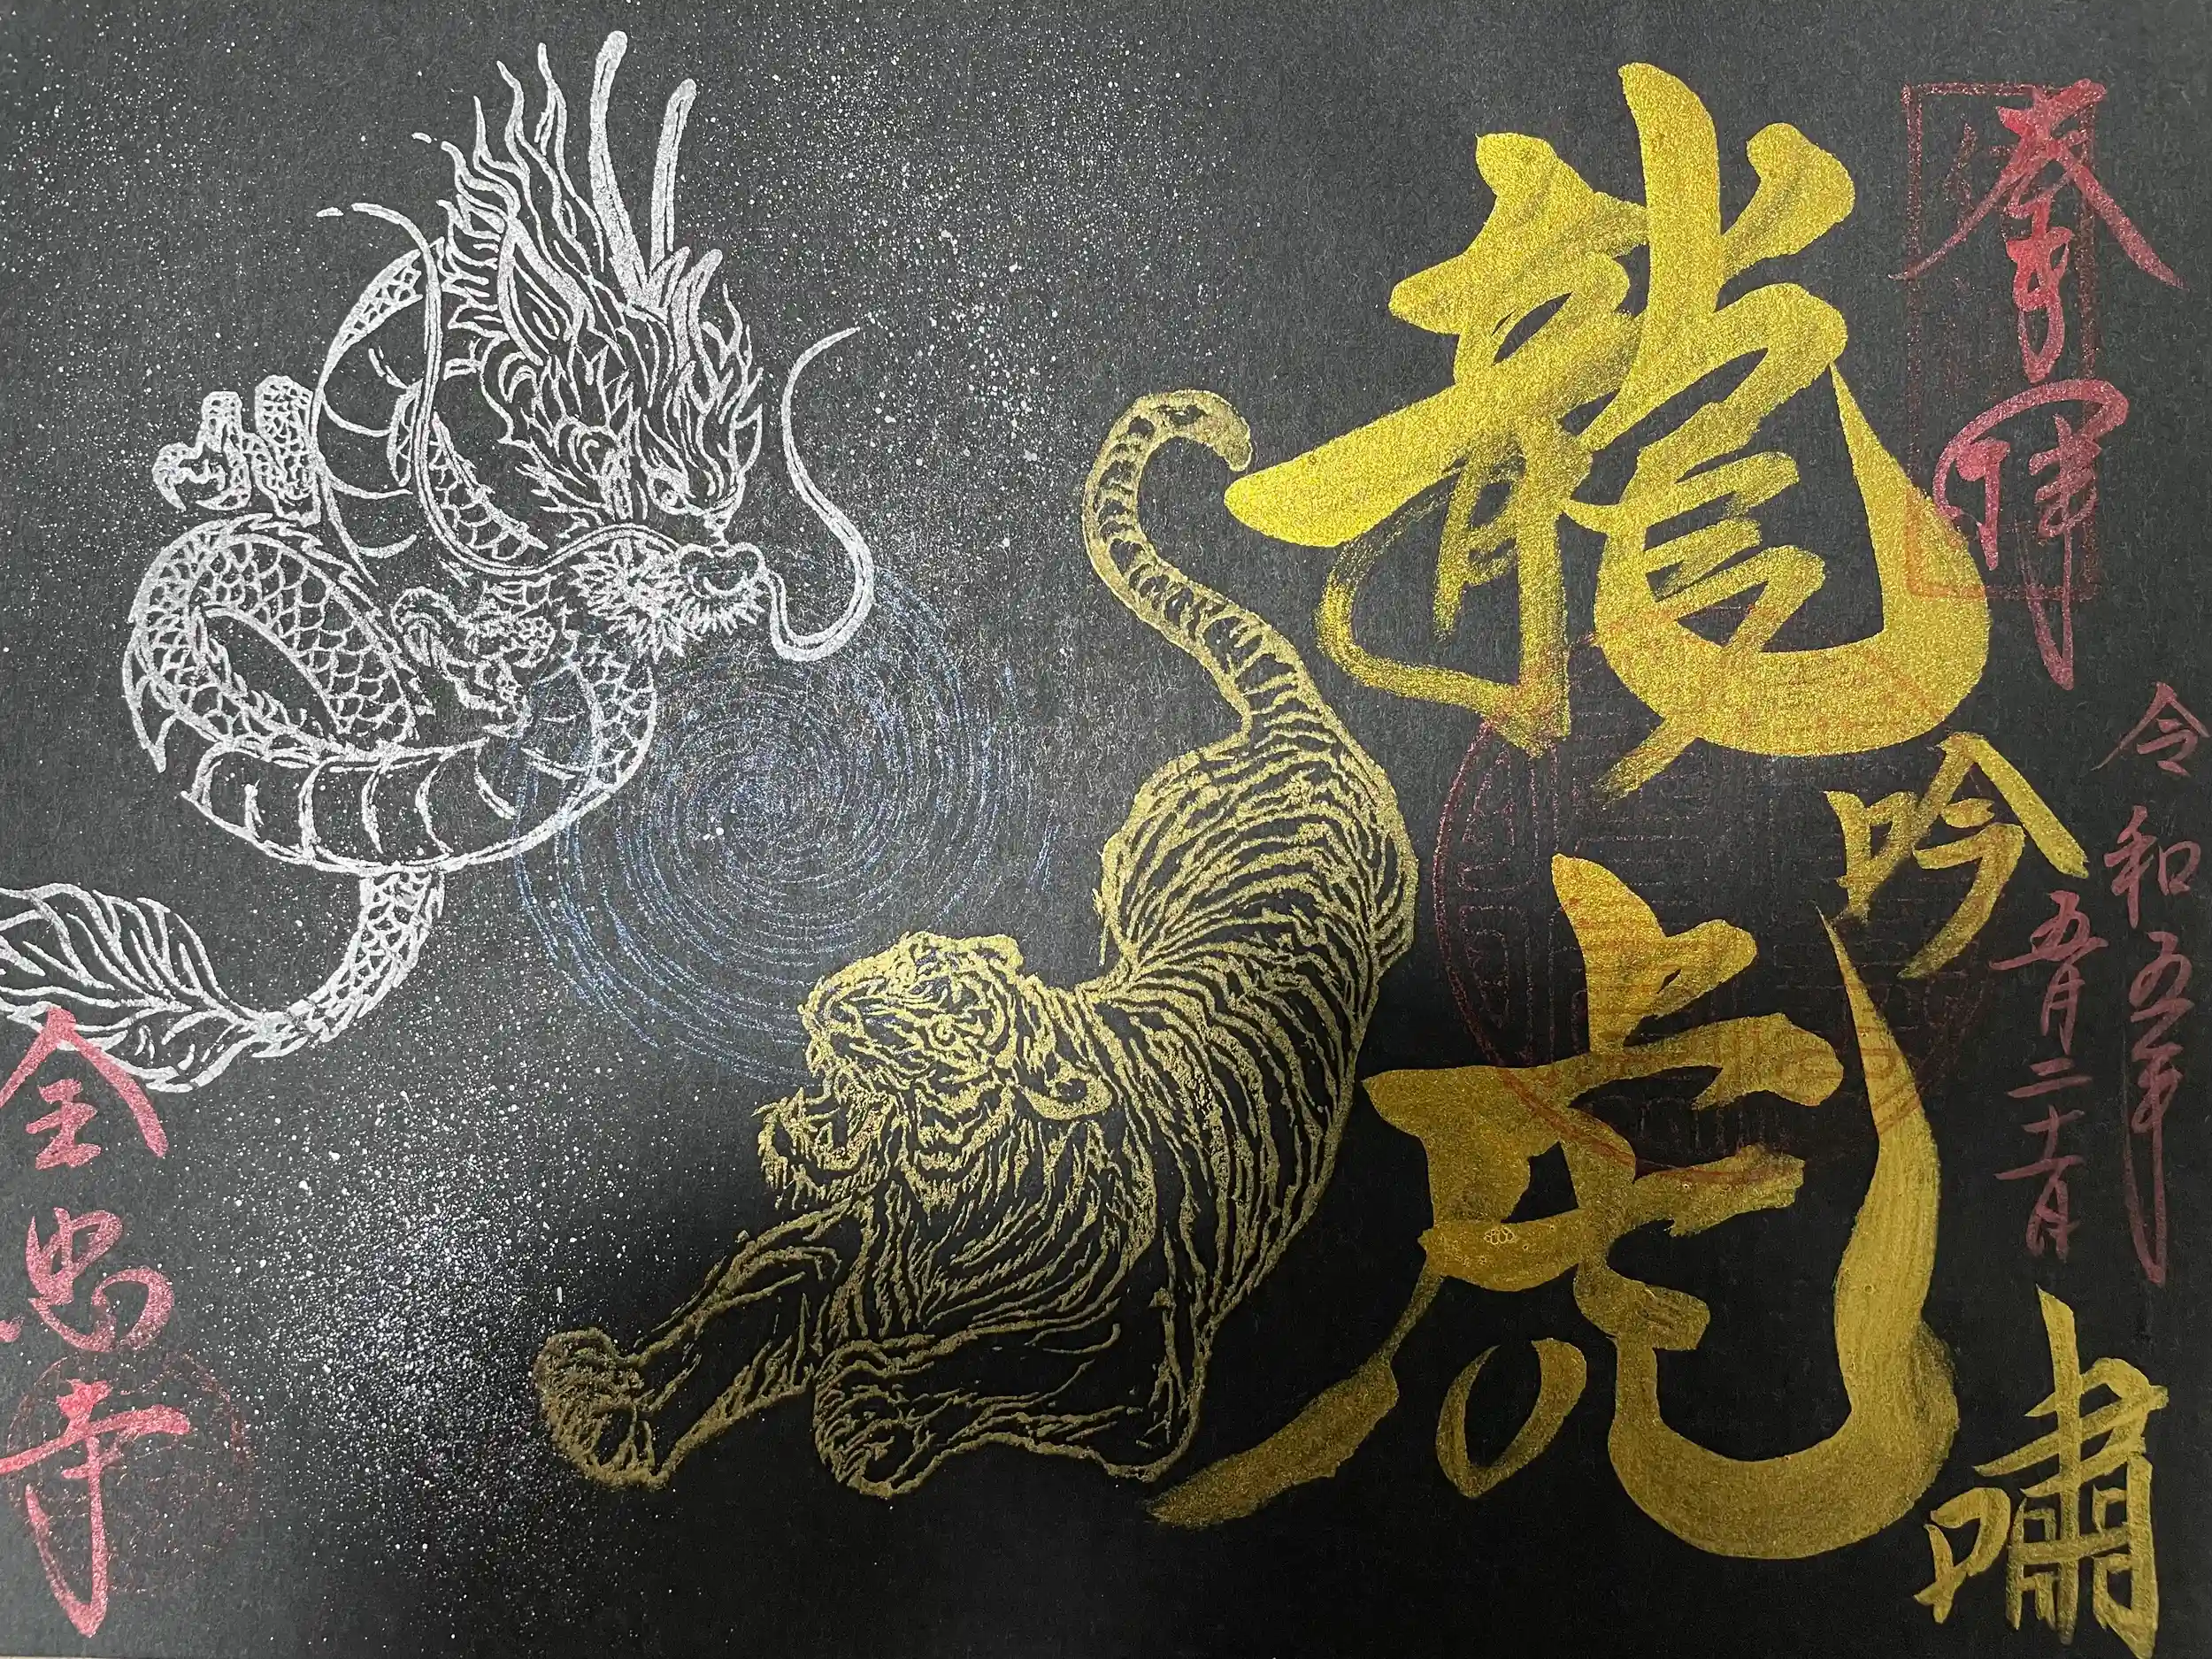 奉拝
令和五年
五月二十一日
龍吟
虎嘯
全忠寺